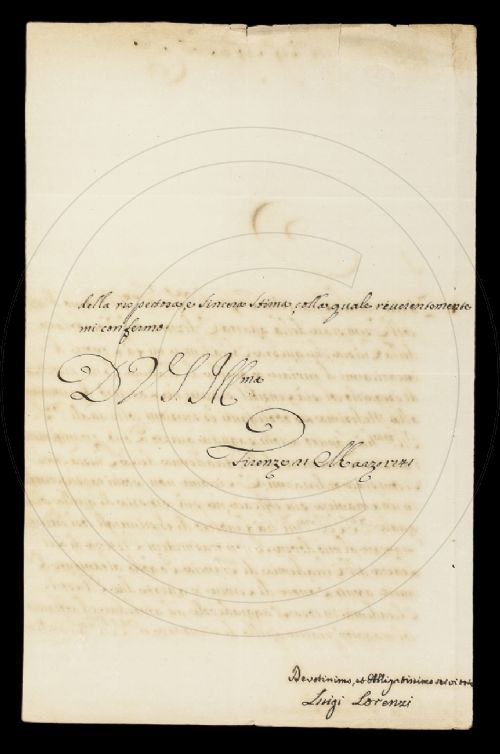 della rispettosa, e sincera stima, colla quale reverentemente
mi confermo
D V. S. Ill.ma
Firenze 21 Marzo 1741
Devotissimo, et Obbligatissimo servitore
Luigi Lorenzi